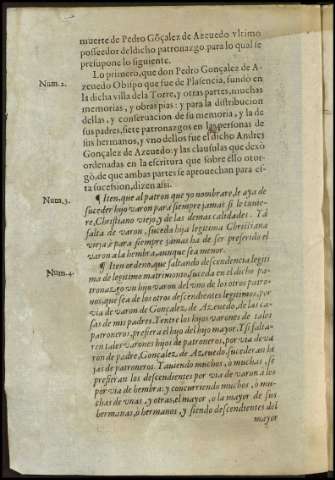 muerte de Pedro Gõçalez de Azeuedo vltimo
posseedor del dicho patronazgo. para lo qual se
presupone lo siguiente.
Lo primero, que don Pedro Gonçalez de A-
Num. 2.
zeuedo Obispo que fue de Plasencia, fundò en
la dicha villa dela Torre, y otras partes, muchas
memorias, y obras pias: y para la distribucion
dellas, y conseruacion de su memoria, y la de
sus padres, siete patronazgos en las personas de
sus hermanos, y vno dellos fue el dicho Andres
Gonçalez de Azeuedo: y las clausulas que dexò
ordenadas en la escritura que sobre ello otor-
gò, de que ambas partes se aprouechan para es-
ta sucession, dizen assi.
Num. 3.
¶ Iten, que al patron que yo nombrare, le aya de
suceder hijo varon para siempre jamas si le tuuie-
re, Christiano viejo, y de las demas calidades. Y à
falta de varon, suceda hija legitima Christiana
vieja, è para siempre jamas ha de ser preferido el
varon a la hembra, aunque sea menor.
Num. 4.
¶ Iten ordeno, que faltando descendencia legiti
ma de legitimo matrimonio, suceda en el dicho pa-
tronazgo vn hijo varon del vno de los otros patro-
nos, que sea de los otros descendientes legitimos, por
via de varon de Gonçalez de Azeuedo, de las ca-
sas de mis padres. Y entre los hijos varones de tales
patroneros, prefiera el hijo del hijo mayor. Y si falta-
ren tales varones hijos de patroneros, por via de va
ron de padre, Gonçalez de Azeuedo, sucederan hi
jas de patroneros. Y auiendo muchos, ò muchas, se
prefieran los descendientes por via de varon a los
por via de hembra: y concurriendo muchos, ò mu-
chas de vnas, y otras, el mayor, o la mayor de sus
hermanas, ò hermanos, y siendo descendientes del
mayor